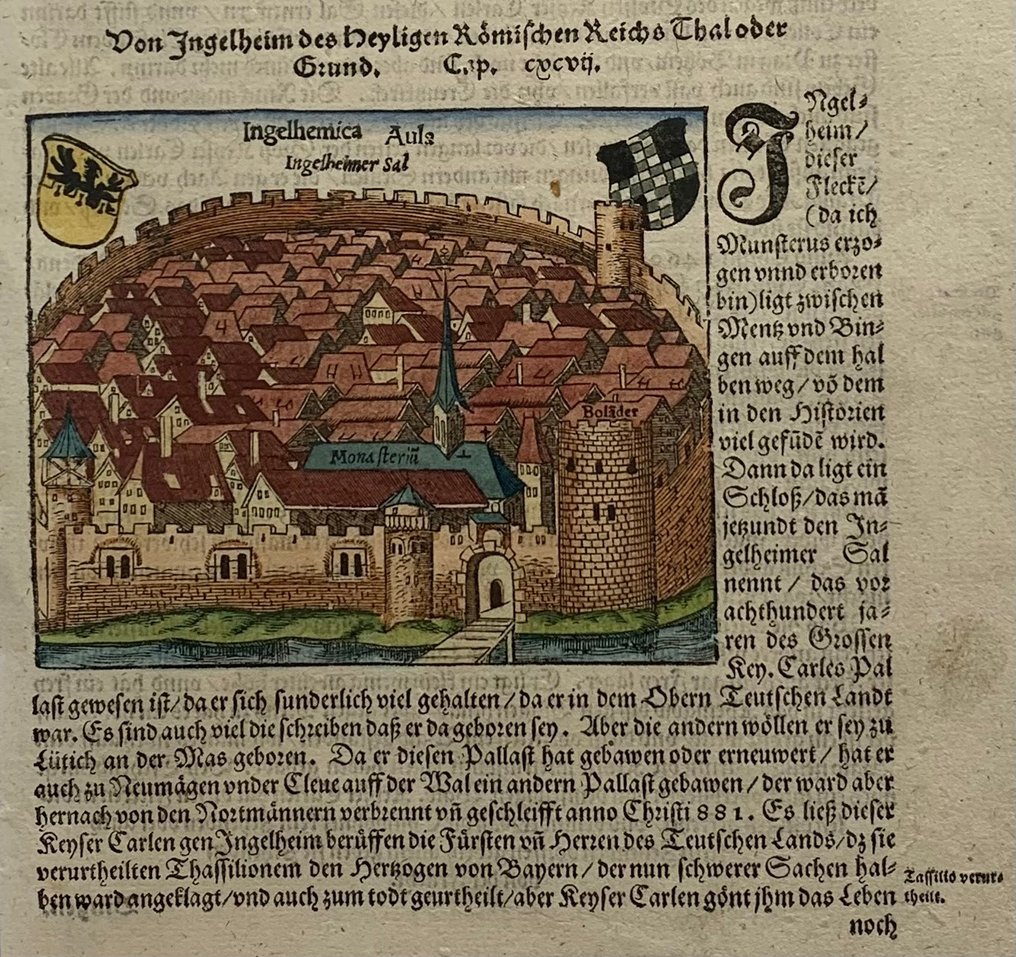 Von Ingelheim des Heyligen Römischen Reichs Thal oder
Grund. Cap. cxcvij.
Ingelhemica Aula
Ingelheimer Sal
Bolãder
Monasteriũ
INgel-
heim/
dieser
Fleckẽ/
(da ich
Munsterus erzo-
gen vnnd erboren
bin) ligt zwischen
Mentz vnd Bin-
gen auff dem hal
ben weg/ võ dem
in den Historien
viel gefũdẽ wird.
Dann da ligt ein
Schloß/ das mã
jetzundt den In-
gelheimer Sal
nennt/ das vor
achthundert ja-
ren des Grossen
Key. Carles Pal
last gewesen ist/ da er sich sunderlich viel gehalten/ da er in dem Obern Teutschen Landt
war. Es sind auch viel die schreiben daß er da geboren sey. Aber die andern wöllen er sey zu
Lütich an der Mas geboren. Da er diesen Pallast hat gebawen oder erneuwert/ hat er
auch zu Neumägen vnder Cleue auff der Wal ein andern Pallast gebawen/ der ward aber
hernach von den Nortmännern verbrennt vñ geschleifft anno Christi 881. Es ließ dieser
Keyser Carlen gen Ingelheim berüffen die Fürsten vñ Herren des Teutschen Lands/ dz sie
verurtheilten Thassilionem den Hertzogen von Bayern/ der nun schwerer Sachen hal-
ben ward angeklagt/ vnd auch zum todt geurtheilt/ aber Keyser Carlen gönt jhm das Leben
Tassilio verur-
theilt.
noch